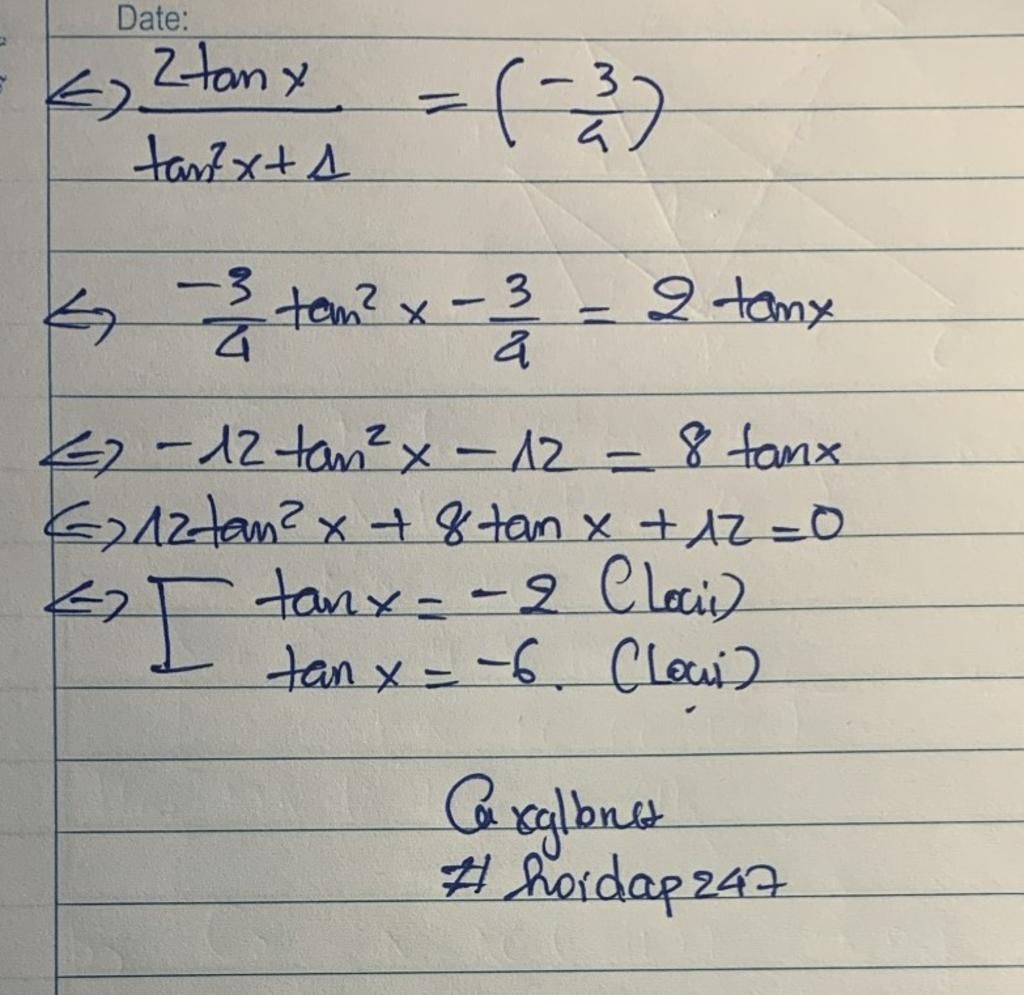 Date:
<=> 2tan x / tan²x + 1 = (-3/4)
<=> -3/4 tan² x - 3/4 = 2 tanx
<=> -12 tan² x - 12 = 8 tanx
<=> 12tan² x + 8 tan x + 12 = 0
<=> [ tan x = -2 (Loại)
tan x = -6. (Loại)
#hoidap247